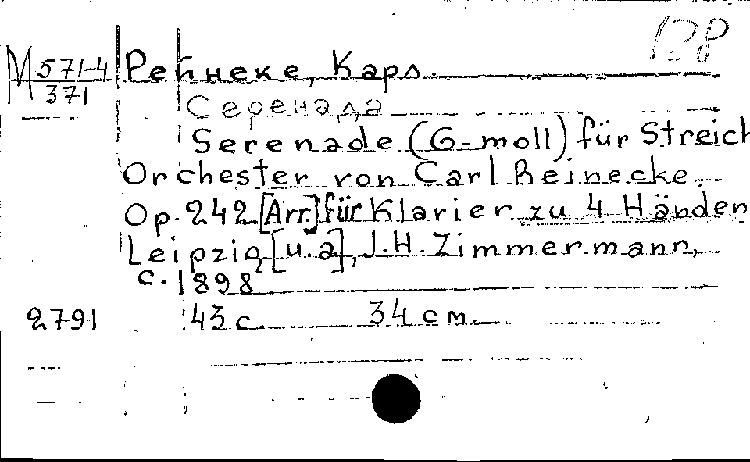 М 571-4
371
Рейнеке, Карл.
Серенада
Serenade (G-moll) für Streich
Orchester von Carl Reinecke.
Op. 242 [Arr.] für Klavier zu 4 Händen
Leipzig, [u.a], J.H. Zimmermann,
c. 1898
2791 43 с. 34 см.